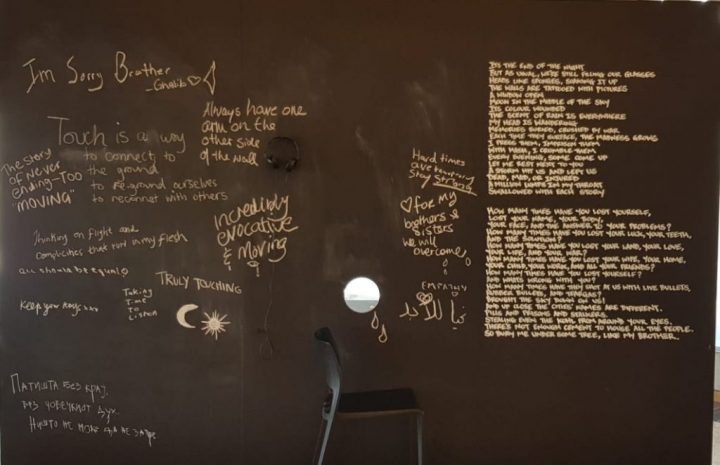 I'm Sorry Brother
- Ghalib
Always have one
arm on the
other side
of the wall
Touch is a way
to connect to
the ground
to re-ground ourselves
to reconnect with others
The story
of Never
ending-Too
"MOVING"
Thinking on flight and
complicities that run in my flesh
all should be equal
Keep your
Taking
Time
To
Listen
TRULY TOUCHING
incredibly
evocative
&
Moving
Hard times
are temporary
Stay strong
for my
brothers &
sisters
we will
overcome
EMPATHY
ПАТИШТА БЕЗ КРАЈ,
БЕЗ ЧОВЕЧКИОТ ДУХ.
НИШТО НЕ МОЖЕ ДА НЕ
ITS THE END OF THE NIGHT
BUT AS USUAL, WE'RE STILL FILLING OUR GLASSES
HEADS LIKE SPONGES, SOAKING IT UP
THE WALLS ARE TATTOOED WITH PICTURES
A WINDOW OPEN
MOON IN THE MIDDLE OF THE SKY
ITS COLOUR WOUNDED
THE SCENT OF RAIN IS EVERYWHERE
MY HEAD IS WANDERING
MEMORIES BURIED, CRUSHED BY WAR
EACH TIME THEY SURFACE, THE MADNESS GROWS
I PRESS THEM, IMPRISON THEM
WITH HASH, I CRUMBLE THEM
EVERY EVENING, SOME COME UP
LET ME REST NEXT TO YOU
A STORM HIT US AND LEFT US
DEAD, MAD, OR INJURED
A MILLION LUMPS IN MY THROAT
SWALLOWED WITH EACH STORY
HOW MANY TIMES HAVE YOU LOST YOURSELF,
LOST YOUR NAME, YOUR BODY,
YOUR FACE, AND THE ANSWER TO YOUR PROBLEMS?
HOW MANY TIMES HAVE YOU LOST YOUR LUCK, YOUR TEETH,
AND THE SOLUTION?
HOW MANY TIMES HAVE YOU LOST YOUR LAND, YOUR LOVE,
YOUR LIFE, AND YOUR WAR?
HOW MANY TIMES HAVE YOU LOST YOUR WIFE, YOUR HOME,
YOUR CHILD, YOUR WORK, AND ALL YOUR FRIENDS?
HOW MANY TIMES HAVE YOU LOST YOURSELF?
AND WHATS WRONG WITH YOU?
HOW MANY TIMES HAVE THEY SPAT AT US WITH LIVE BULLETS,
RUBBER BULLETS, AND TEARGAS?
BROUGHT THE SKY DOWN ON US!
AND UP CLOSE THE CITIES' NAMES ARE DIFFERENT.
PILLS AND PRISONS AND STALKERS
STEALING EVEN THE KOHL FROM AROUND YOUR EYES.
THERE'S NOT ENOUGH CEMENT TO HOUSE ALL THE PEOPLE.
SO BURY ME UNDER SOME TREE, LIKE MY BROTHER.